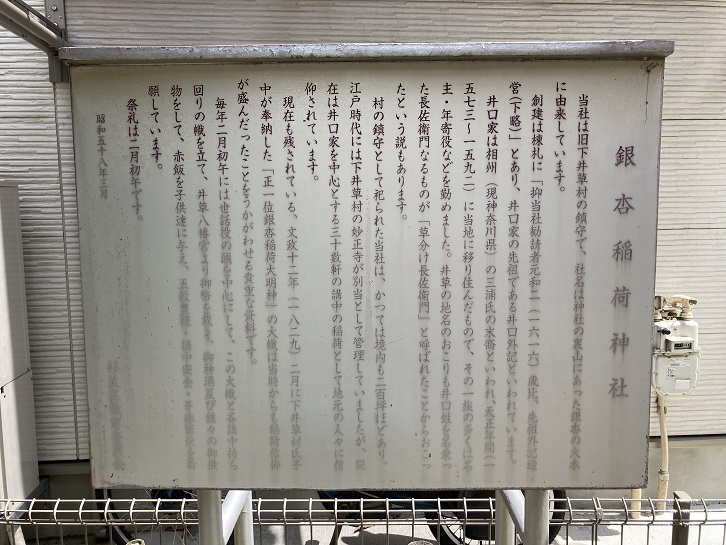 銀杏稲荷神社
当社は旧下井草村の鎮守で、社名は神社の裏山にあった銀杏の大木
に由来しています。
創建は棟札に「抑当社勧請者元和二(一六一六)歳比、先祖外記造
営(下略)」とあり、井口家の先祖である井口外記といわれています。
井口家は相州(現神奈川県)の三浦氏の末裔といわれ、天正年間(一
五七三〜一五九二)に当地に移り住んだもので、その一族の多くは名
主・年寄役などを勤めました。井草の地名のおこりも井口姓を名乗っ
た長佐衛門なるものが「草分け長佐衛門」と呼ばれたことからおこっ
たという説もあります。
村の鎮守として祀られた当社は、かつては境内も二百坪ほどあり、
江戸時代には下井草村の妙正寺が別当として管理していましたが、現
在は井口家を中心とする三十数軒の講中の稲荷として地元の人々に信
仰されています。
現在も残されている、文政十二年(一八二九)二月に下井草村氏子
中が奉納した「正一位銀杏稲荷大明神」の大幟は当時からも稲荷信仰
が盛んだったことをうかがわせる貴重な資料です。
毎年二月初午には世話役の頭を中心にして、この大幟と各講中持ち
回りの幟を立て、井草八幡宮より御幣を戴き、御神酒及び種々の御供
物をして、赤飯を子供達に与え、五穀豊穣・講中安全・を祈
願しています。
祭礼は二月初午です。
昭和五十八年三月